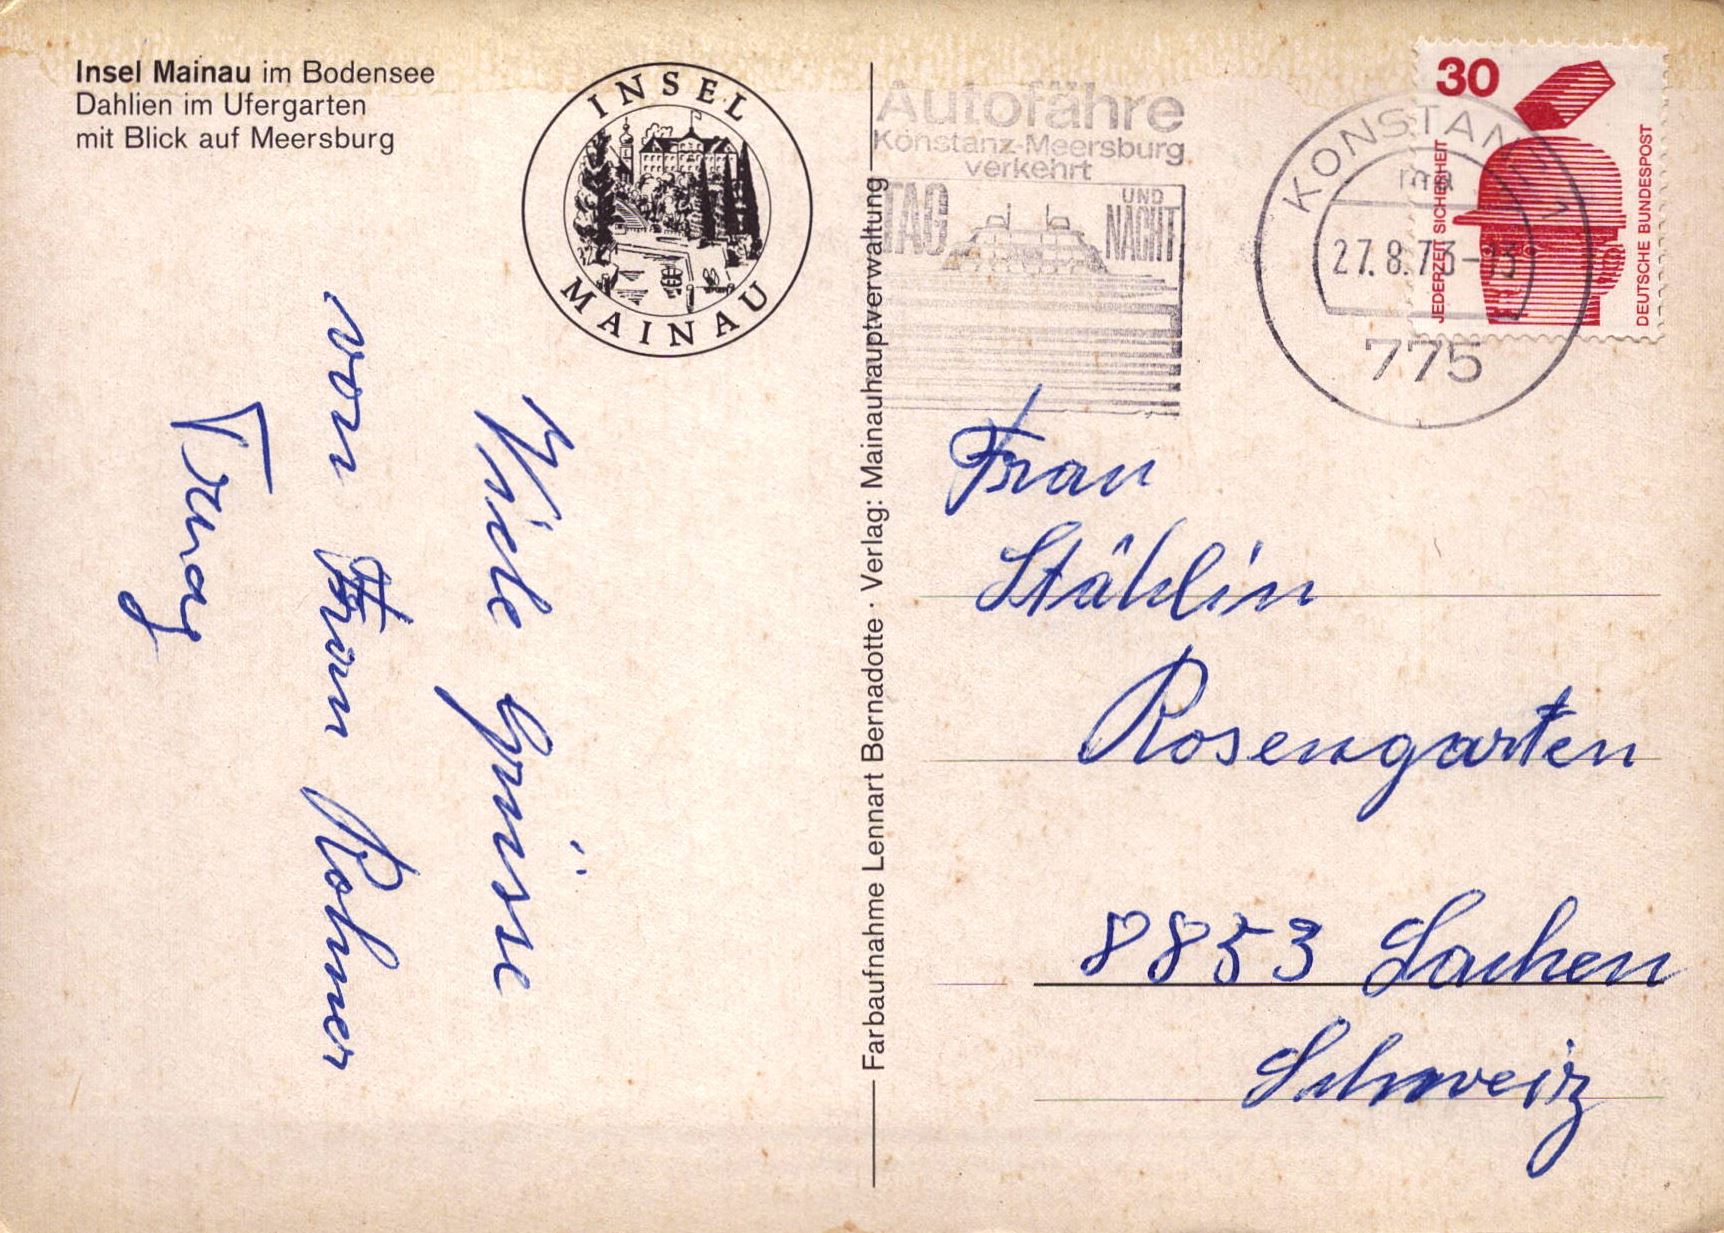 Insel Mainau im Bodensee
Dahlien im Ufergarten
mit Blick auf Meersburg
INSEL
MAINAU
Viele Grüsse
von Fram Rohner
Trudy
Farbaufnahme Lennart Bernadotte · Verlag: Mainauhauptverwaltung
Autofähre
Konstanz-Meersburg
verkehrt
TAG
UND
NACHT
KONSTANZ 1
ma
27.8.73-13
775
30
JEDERZEIT SICHERHEIT
DEUTSCHE BUNDESPOST
Frau
Stählin
Rosengarten
8853 Lachen
Schweiz